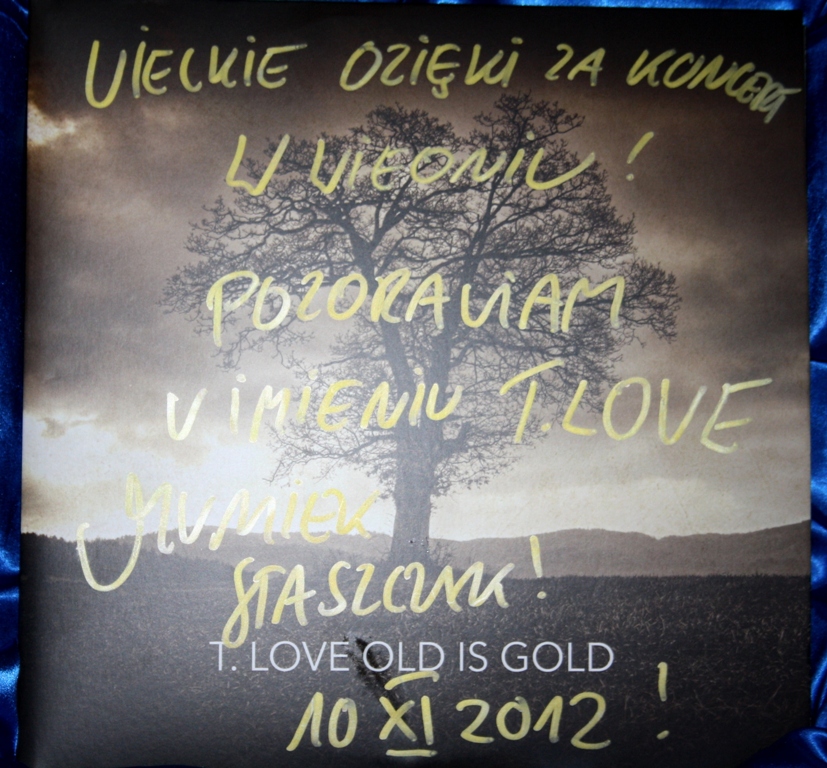 WIELKIE DZIĘKI ZA KONCERT
W WIEDNIU!
POZDRAWIAM
W IMIENIU T.LOVE
MUNIEK
STASZCZYK!
T. LOVE OLD IS GOLD
10 XI 2012!